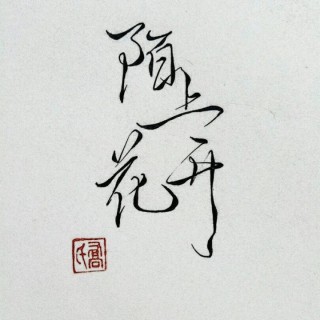 陌上
花开